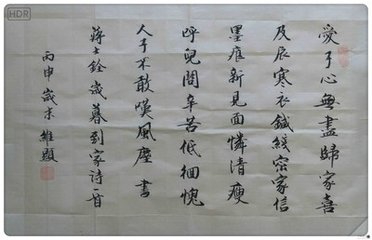 HDR
愛子心無盡歸家喜
及辰寒衣鍼綫密家信
墨痕新見面憐清瘦
呼兒問辛苦低徊愧
人子不敢嘆風塵 書
蔣士銓歲暮到家詩一首
丙申歲末 維題